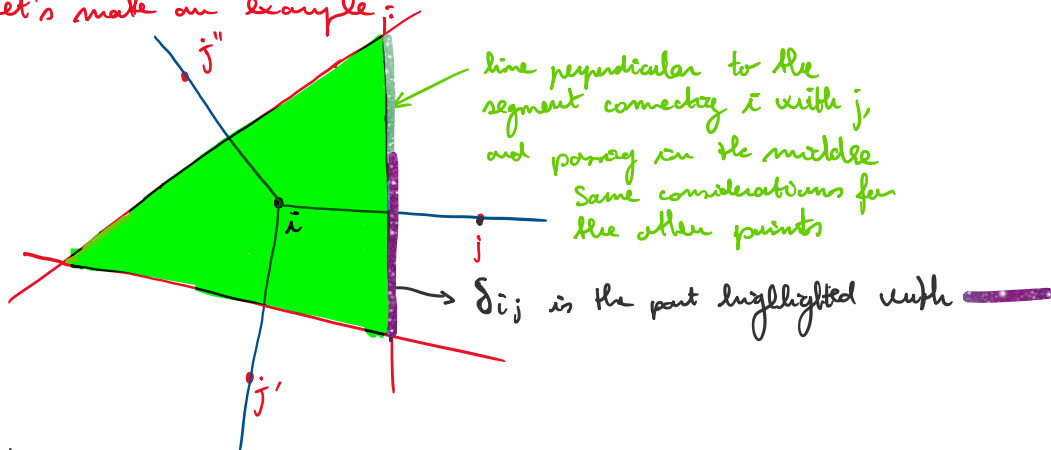 let's make an example:
j"
line perpendicular to the
segment connecting i with j,
and passing in the middle
Same considerations for
the other points
i
j
δij is the part highlighted with
j'